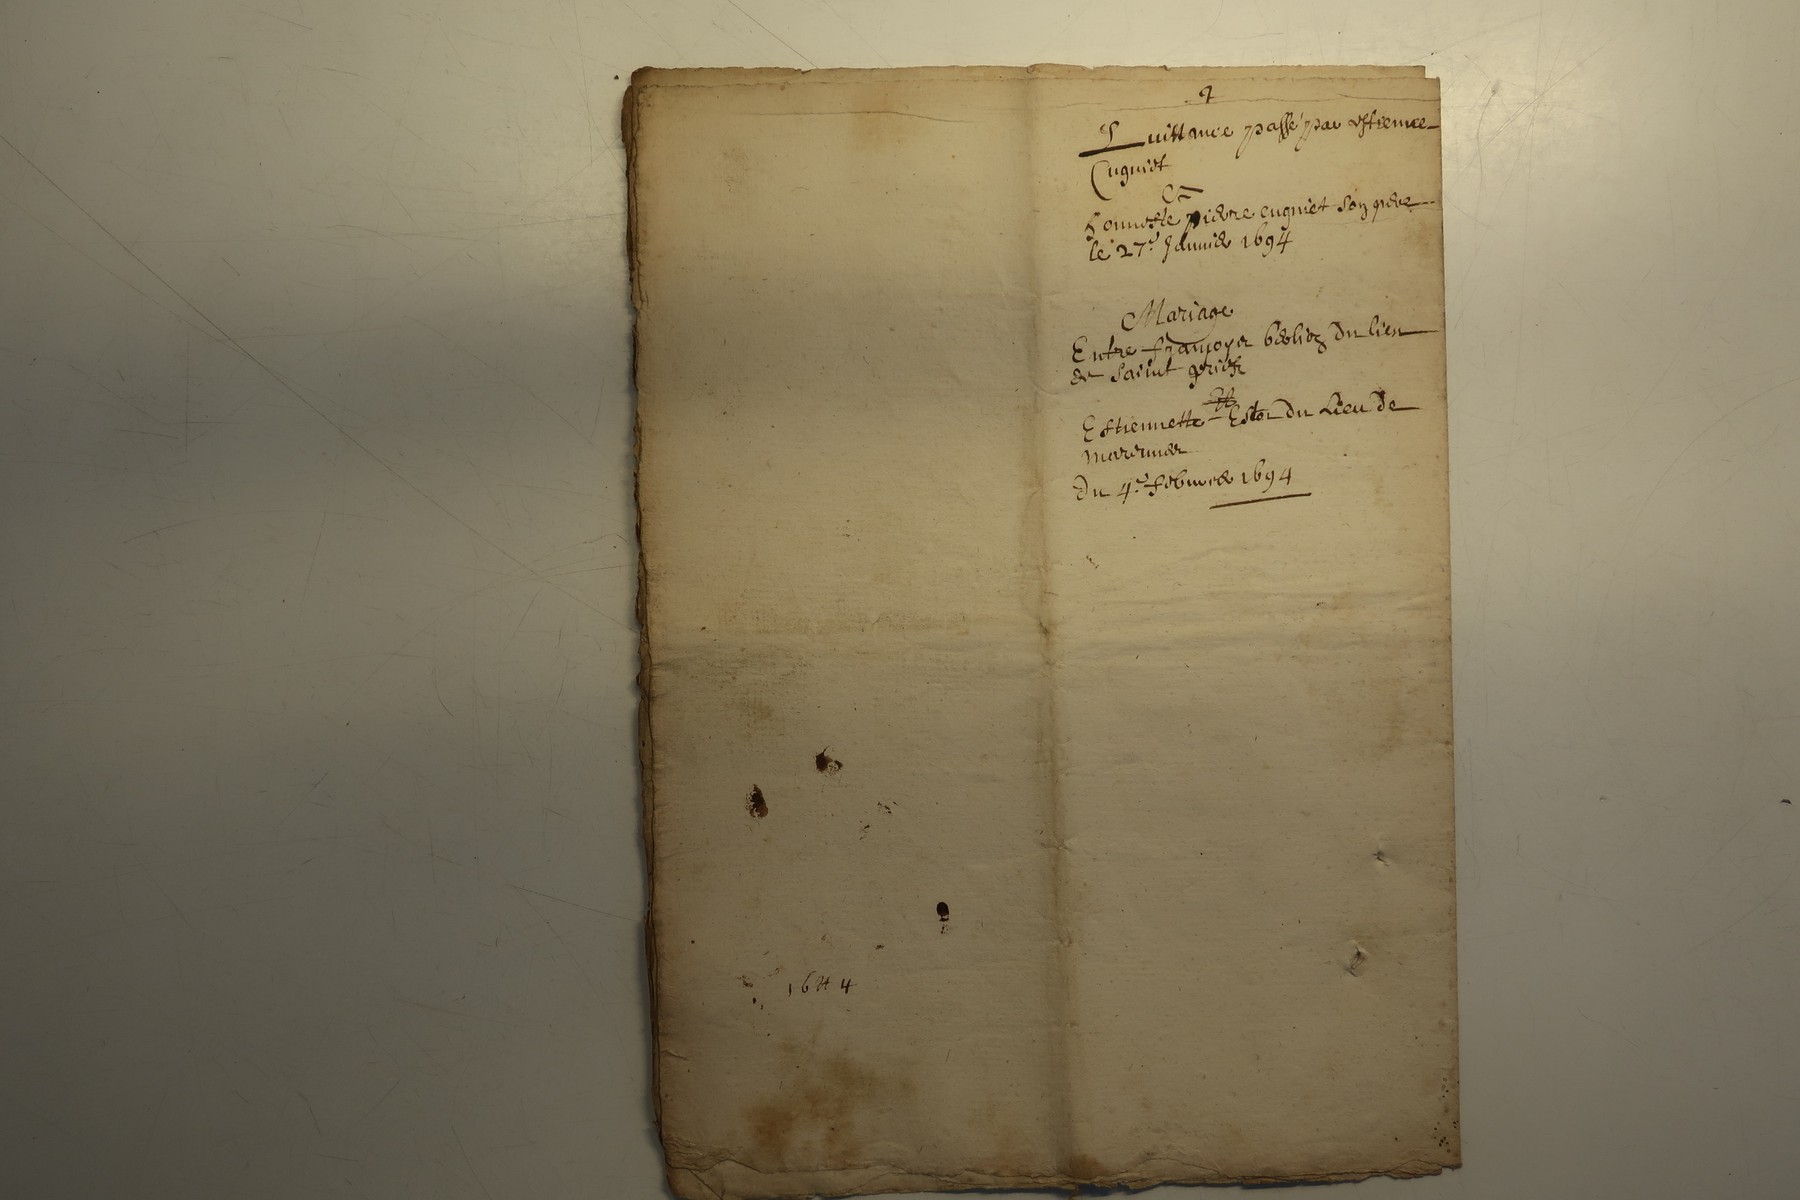 Quittance passé par estienne
Cugniet
Et
honneste pierre cugniet son pere
le 27e Januier 1694
Mariage
Entre françoyse berliez du lieu
de saint
Et
Estiennette du Lieu de
du 4e febure 1694
16 4